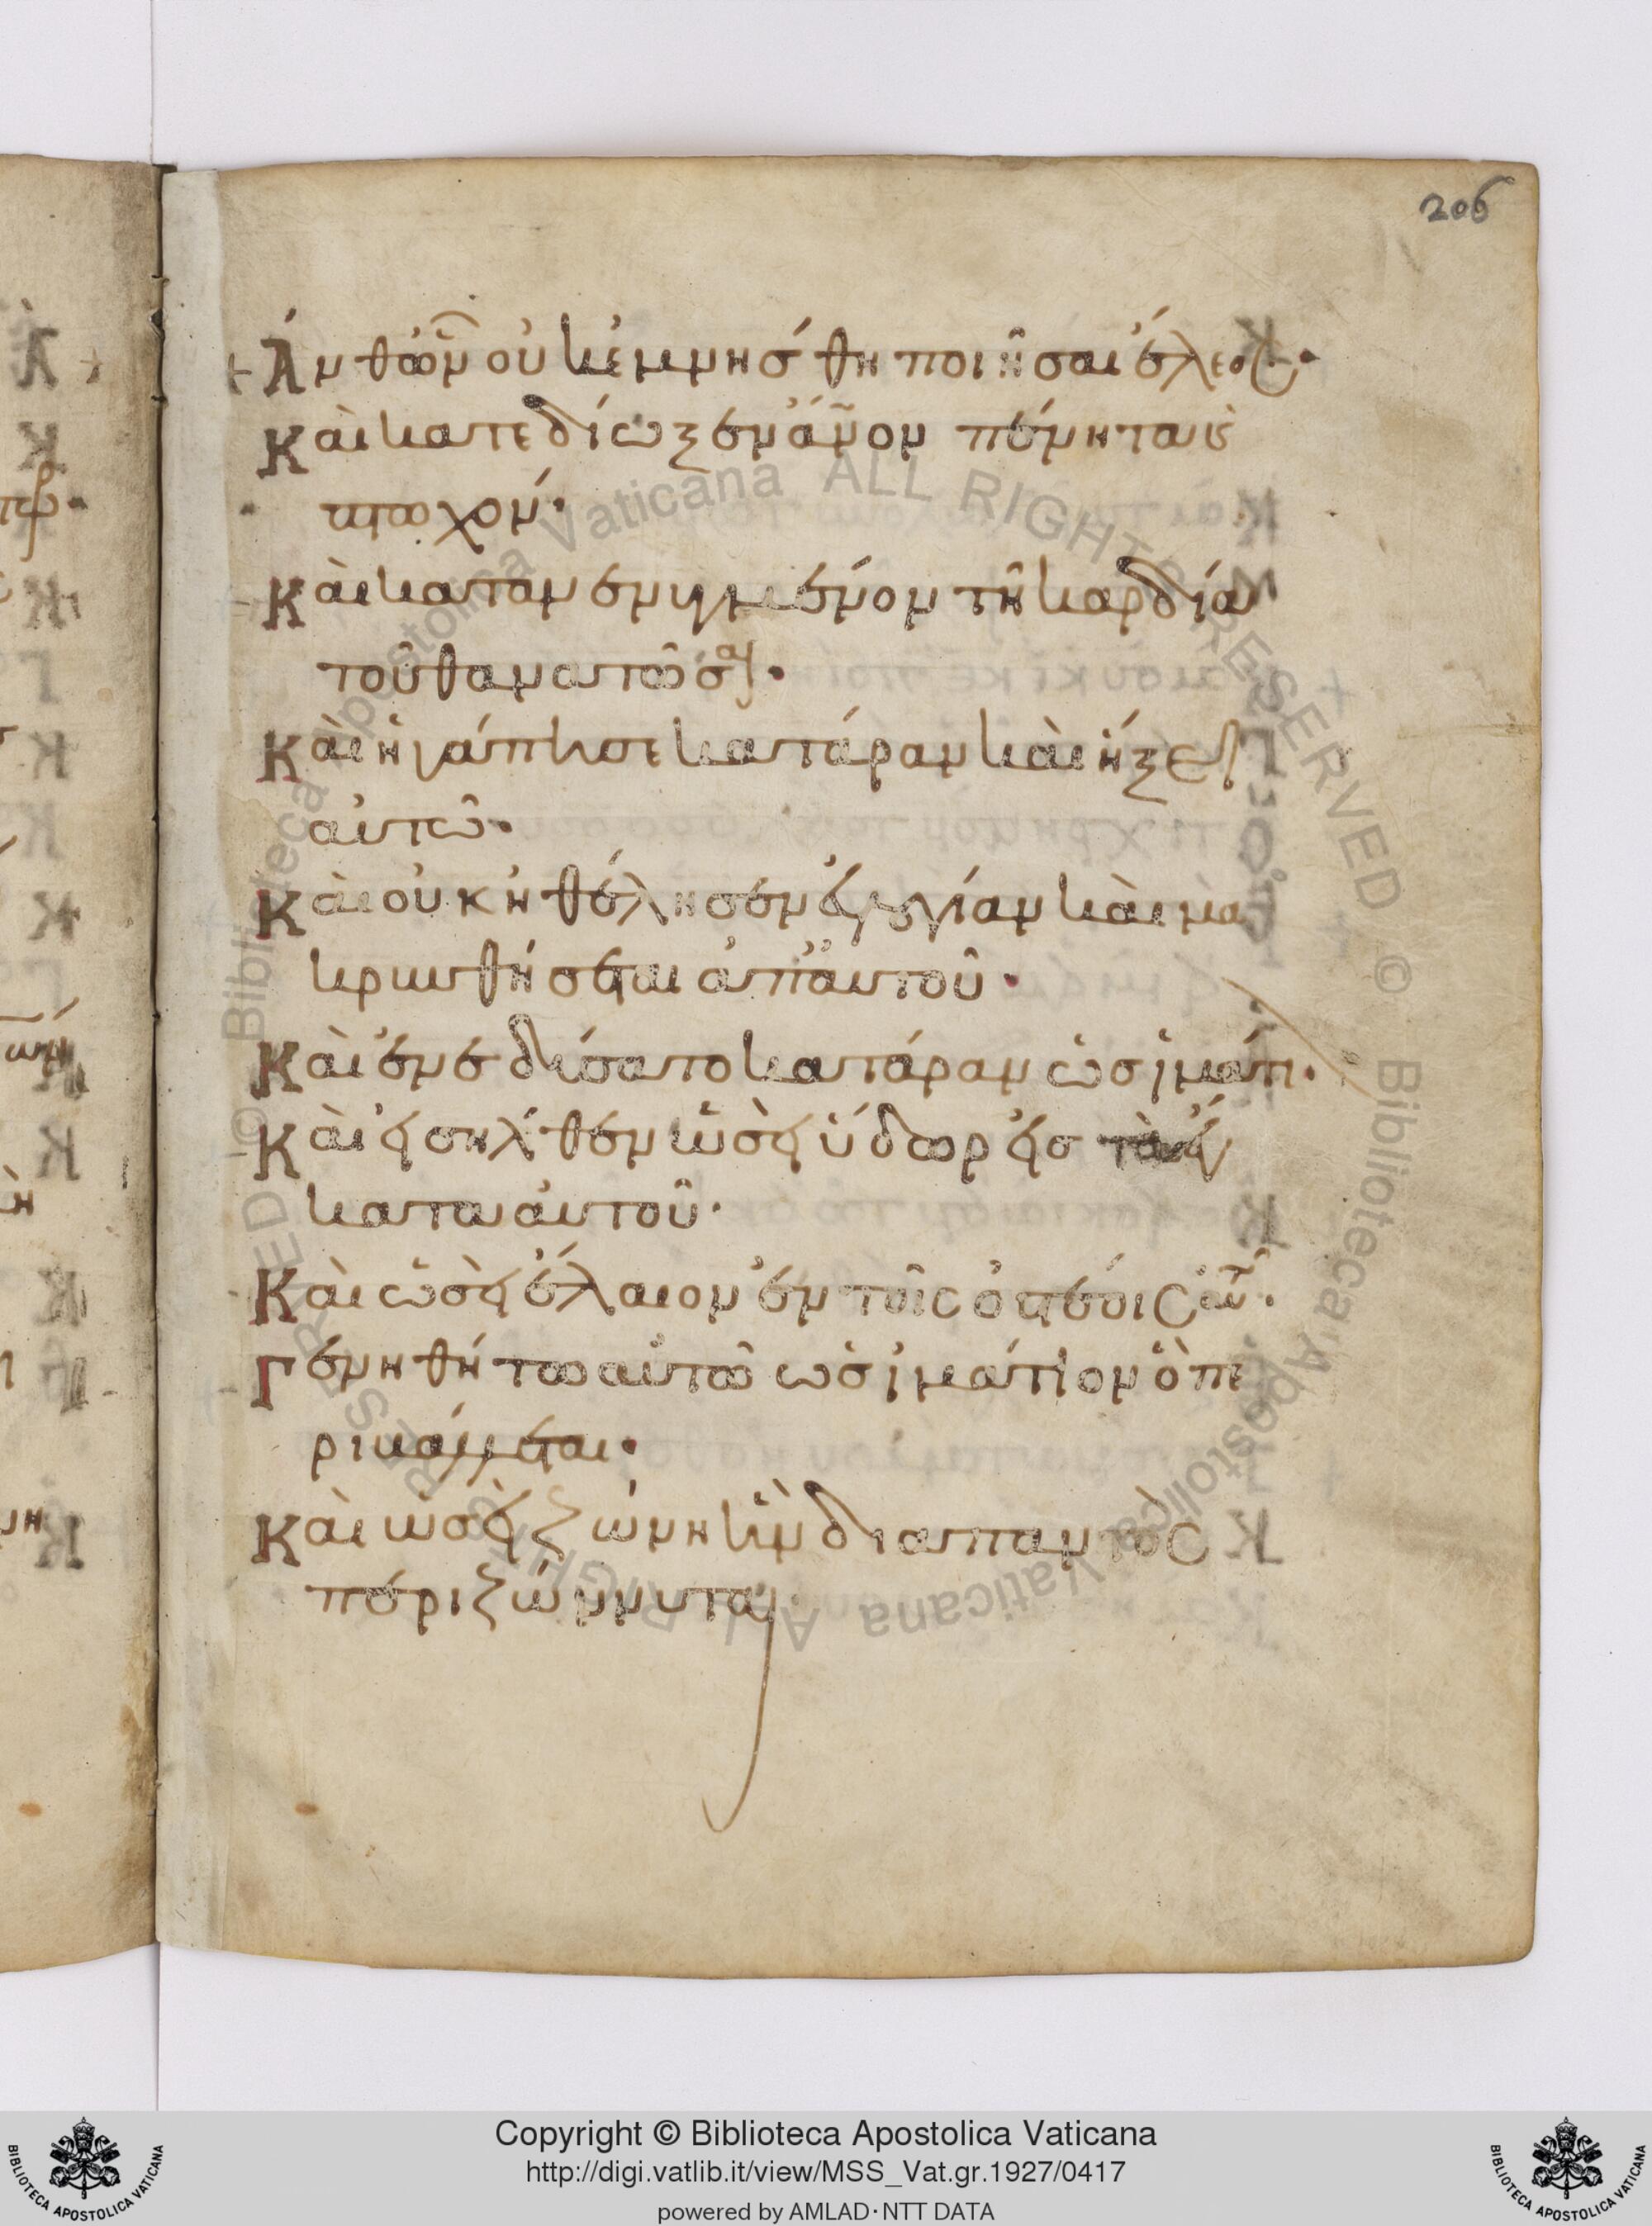 206
Ἀνθῶν οὐκ ἐμνήσθη ποιῆσαι ἔλεος·
Καὶ κατεδίωξεν ἄνον πένητα καὶ
πτωχόν·
Καὶ κατανενυγμένον τῆ καρδία
τοῦ θανατῶσαι·
Καὶ ἠγάπησε κατάραν καὶ ἥξει
αὐτῶ·
Καὶ οὐκ ἠθέλησεν εὐλογίαν καὶ μα
κρυνθήσεται ἀπ αὐτοῦ·
Καὶ ἐνεδύσατο κατάραν ὡς ἱμάτι·
Καὶ εἰσῆλθεν ὡσεὶ ὕδωρ εἰς τὰ ἔγ
κατα αὐτοῦ·
Καὶ ὡσεὶ ἔλαιον ἐν τοῖς ὀστέοις αὐτ·
Γενηθήτω αὐτῶ ὡς ἱμάτιον ὃ πε
ριβάλλεται·
Καὶ ὡσεὶ ζώνη ἣν διαπαντὸς
περιζώννυται·
© Biblioteca Apostolica Vaticana ALL RIGHTS RESERVED
© Biblioteca Apostolica Vaticana ALL RIGHTS RESERVED
Copyright © Biblioteca Apostolica Vaticana
http://digi.vatlib.it/view/MSS_Vat.gr.1927/0417
powered by AMLAD·NTT DATA
BIBLIOTECA APOSTOLICA VATICANA
BIBLIOTECA APOSTOLICA VATICANA